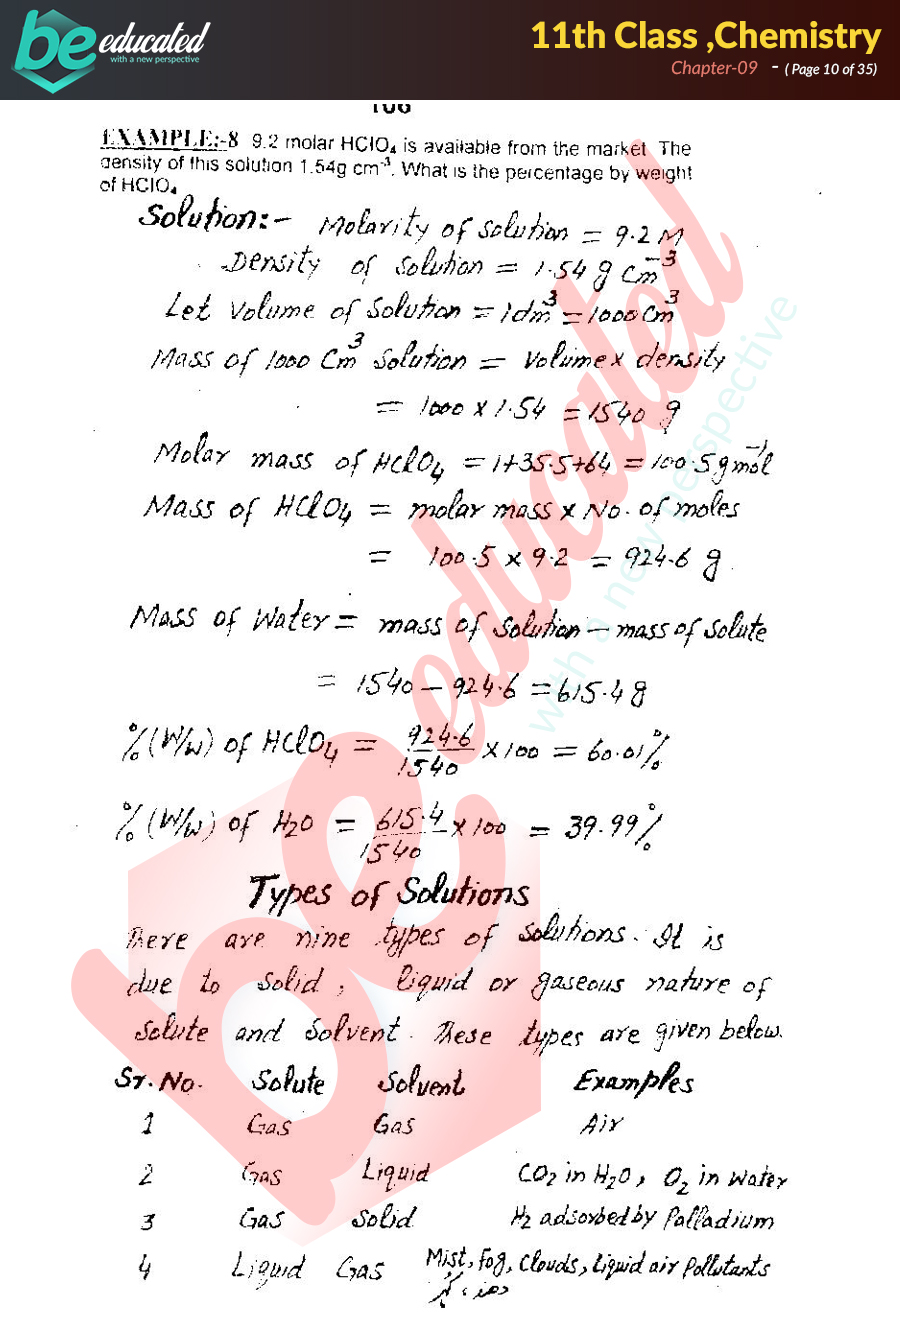 be educated
with a new perspective
11th Class ,Chemistry
Chapter-09 - ( Page 10 of 35)
106
EXAMPLE:-8 9.2 molar HClO₄ is available from the market. The
density of this solution 1.54g cm⁻³. What is the percentage by weight
of HClO₄
Solution:- Molarity of solution = 9.2 M
Density of solution = 1.54 g cm⁻³
Let volume of solution = 1dm³ = 1000cm³
Mass of 1000 cm³ solution = volume x density
= 1000 x 1.54 = 1540 g
Molar mass of HClO₄ = 1+35.5+64 = 100.5 gmol⁻¹
Mass of HClO₄ = molar mass x No. of moles
= 100.5 x 9.2 = 924.6 g
Mass of water = mass of solution - mass of solute
= 1540 - 924.6 = 615.4 g
%(W/w) of HClO₄ = 924.6/1540 x 100 = 60.01%
%(W/w) of H₂O = 615.4/1540 x 100 = 39.99%
Types of Solutions
There are nine types of solutions. It is
due to solid, liquid or gaseous nature of
solute and solvent. These types are given below.
Sr. No. Solute Solvent Examples
1 Gas Gas Air
2 Gas Liquid CO₂ in H₂O, O₂ in water
3 Gas Solid H₂ adsorbed by Palladium
4 Liquid Gas Mist, Fog, Clouds, liquid air Pollutants
be educated
with a new perspective